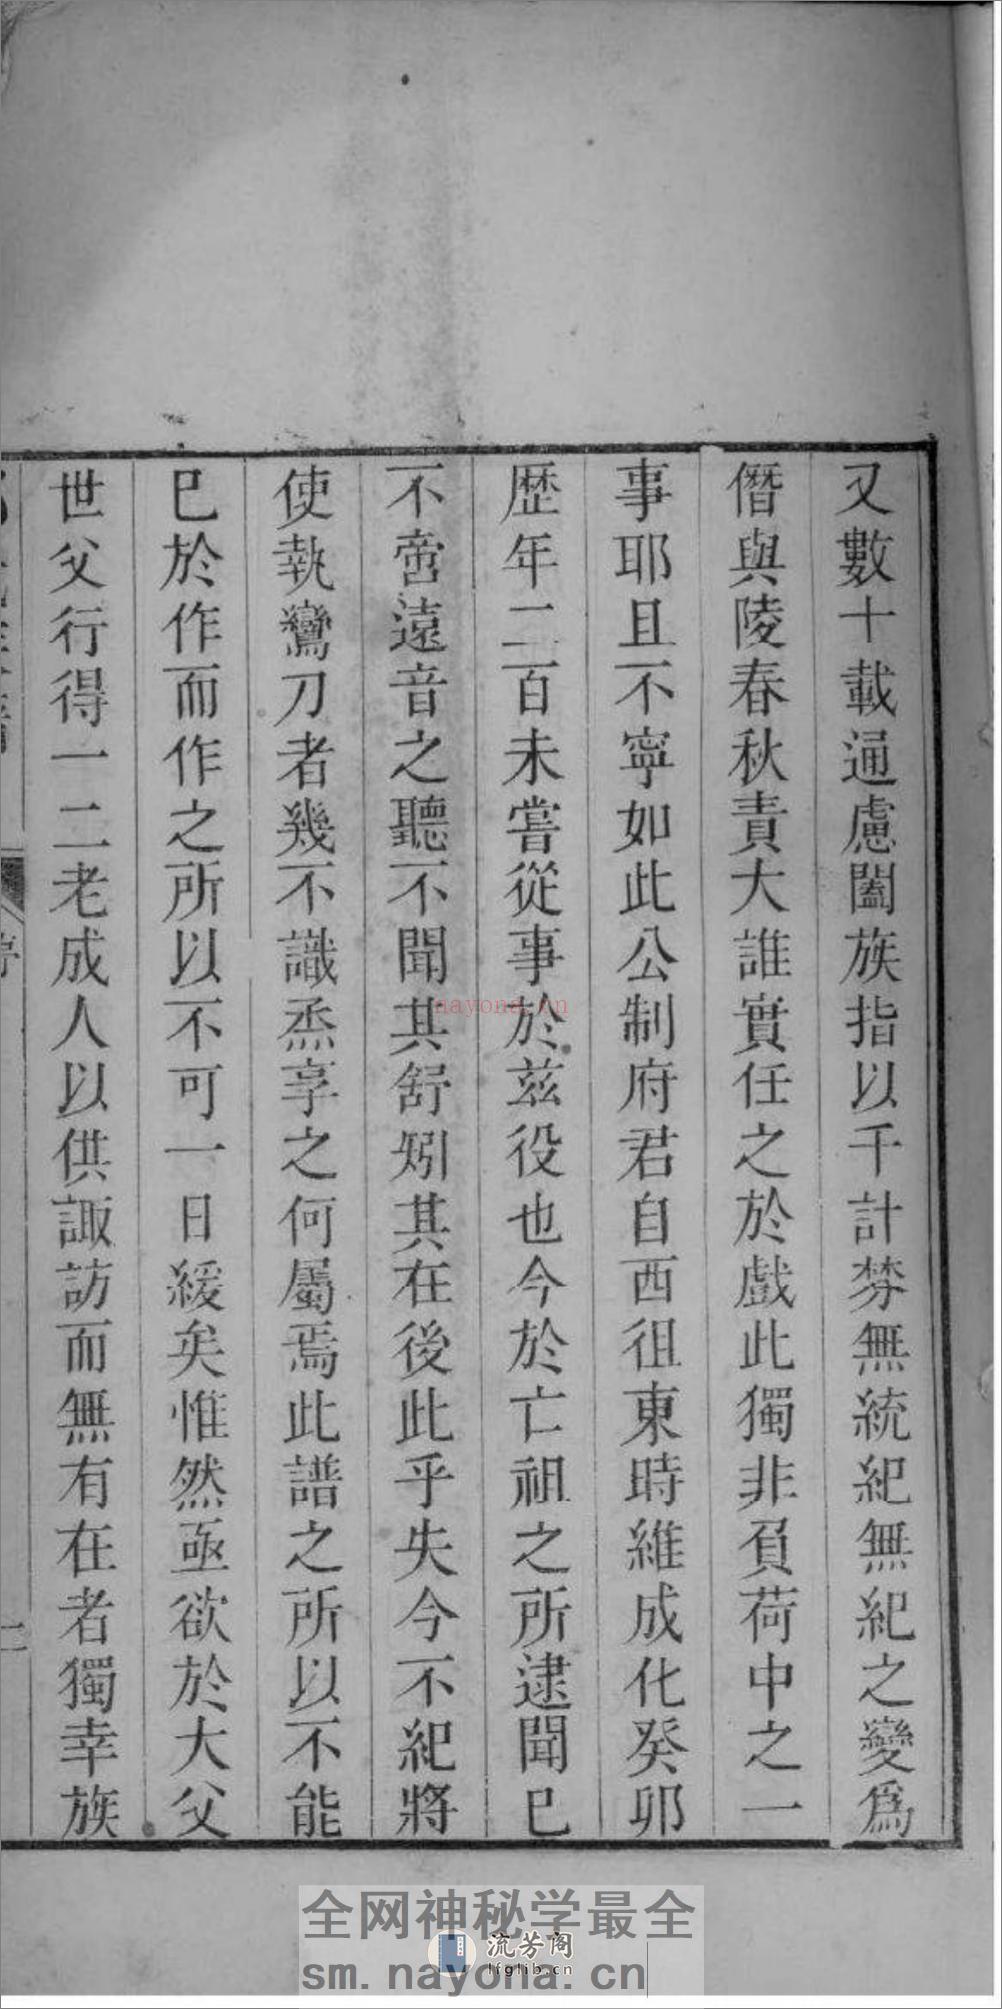 又數十載通慮闔族指以千計棼無統紀無紀之變爲
僭與陵春秋責大誰實任之於戲此獨非負荷中之一
事耶且不寧如此公制府君自西徂東時維成化癸卯
歷年二百未嘗從事於茲役也今於亡祖之所逮聞已
不啻遠音之聽不聞其舒矧其在後此乎失今不紀將
使執鸞刀者幾不識烝享之何屬焉此譜之所以不能
已於作而作之所以不可一日緩矣惟然亟欲於大父
世父行得一二老成人以供諏訪而無有在者獨幸族
序
二
nayona.cn
全网神秘学最全
流芳阁
lfglib.cn
sm.nayona.cn